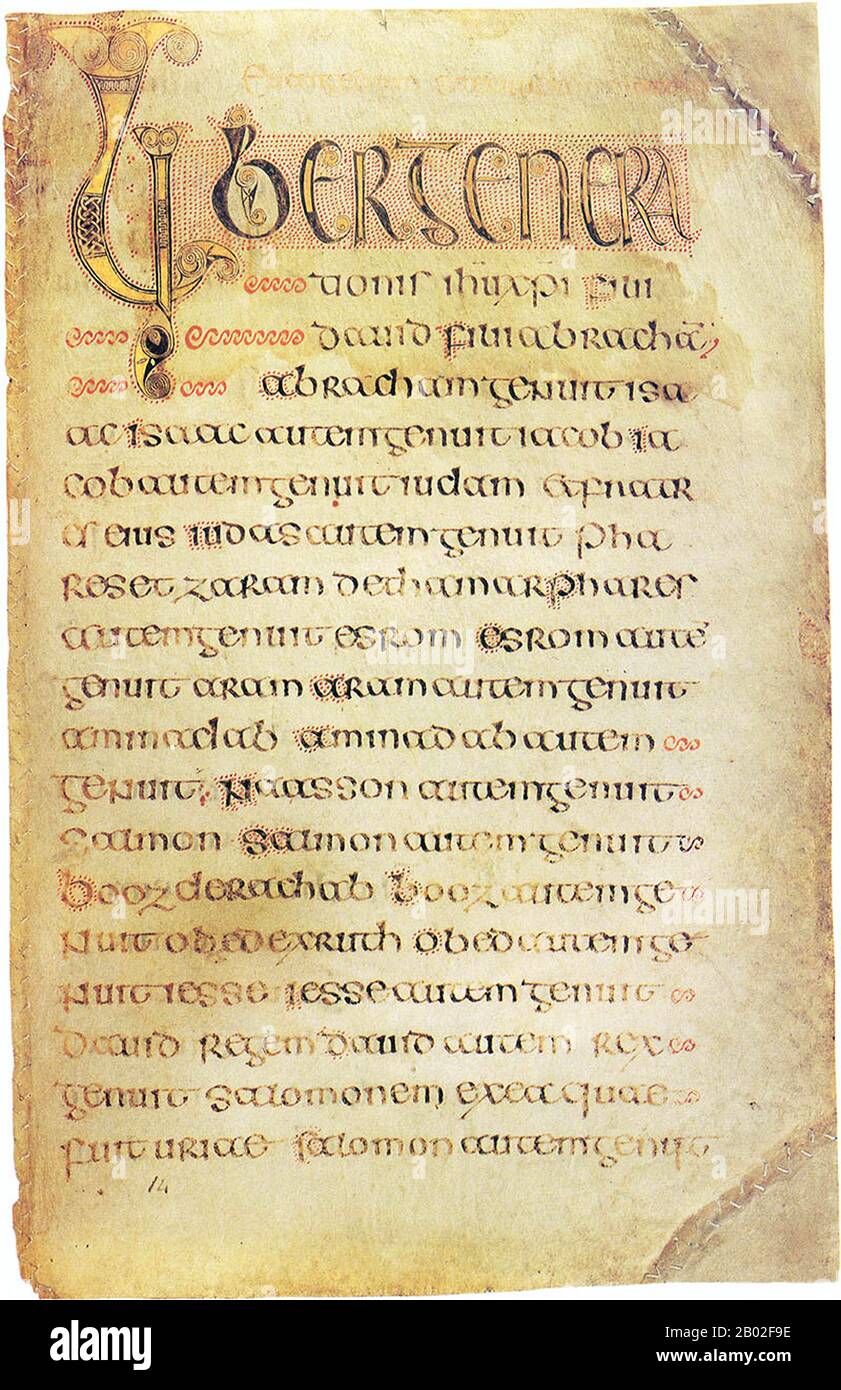 Liber genera
tionis ihu xpi filii
dauid filii abrachā
abracham genuit isa
ac isaac autem genuit iacob ia
cob autem genuit iudam et fratr
es eius iudas autem genuit pha
res et zaram de thamar phares
autem genuit esrom esrom autē
genuit aram aram autem genuit
aminadab aminadab autem
genuit naasson autem genuit
salmon salmon autem genuit
booz de rachab booz autem ge
nuit obed ex ruth obed autem ge
nuit iesse iesse autem genuit
dauid regem dauid autem rex
genuit salomonem ex ea quae
fuit uriae salomon autem genuit
14
alamy
alamy
alamy
alamy
Image ID: 2B02F9E
www.alamy.com